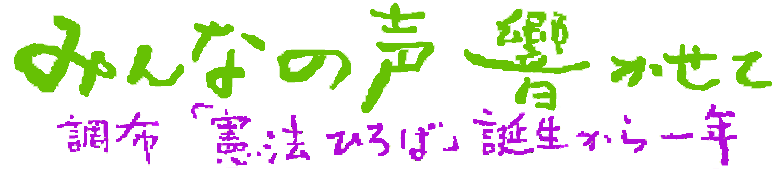 みんなの声響かせて
調布「憲法ひろば」誕生から一年